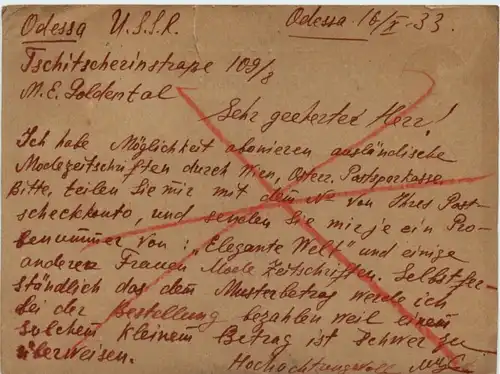 Odessa U.S.S.R. Odessa 16/X. 33.
Tschitscherinstraße 109/8
M.E. Goldental
Sehr geehrter Herr!
Ich habe Möglichkeit abonieren ausländische
Modezeitschriften durch Wien, Österr. Postsparkasse.
Bitte, teilen Sie mir mit dem No von Ihres Post-
scheckkonto, und senden Sie mir je ein Pro-
benummer von: „Elegante Welt" und einige
anderen Frauen Mode Zeitschriften. Selbstver-
ständlich das dem Musterbetrag werde ich
bei der Bestellung bezahlen weil einem
solchem kleinem Betrag ist schwer zu
überweisen.
Hochachtungsvoll